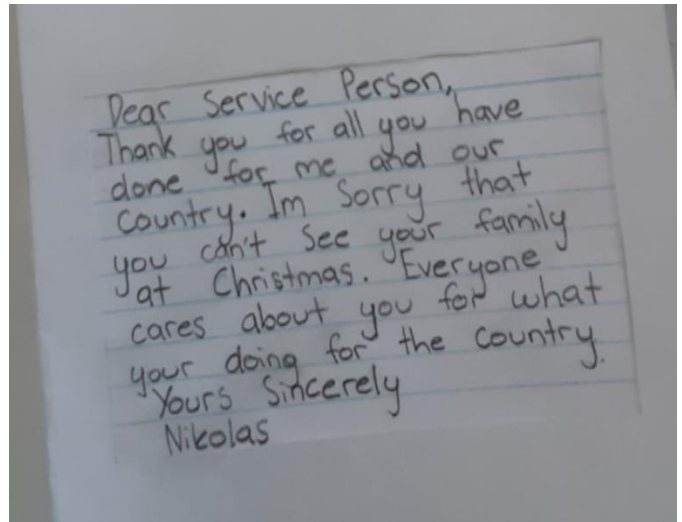 Dear Service Person,
Thank you for all you have
done for me and our
Country. Im Sorry that
you can't See your family
at Christmas. Everyone
cares about you for what
your doing for the country.
Yours Sincerely
Nikolas